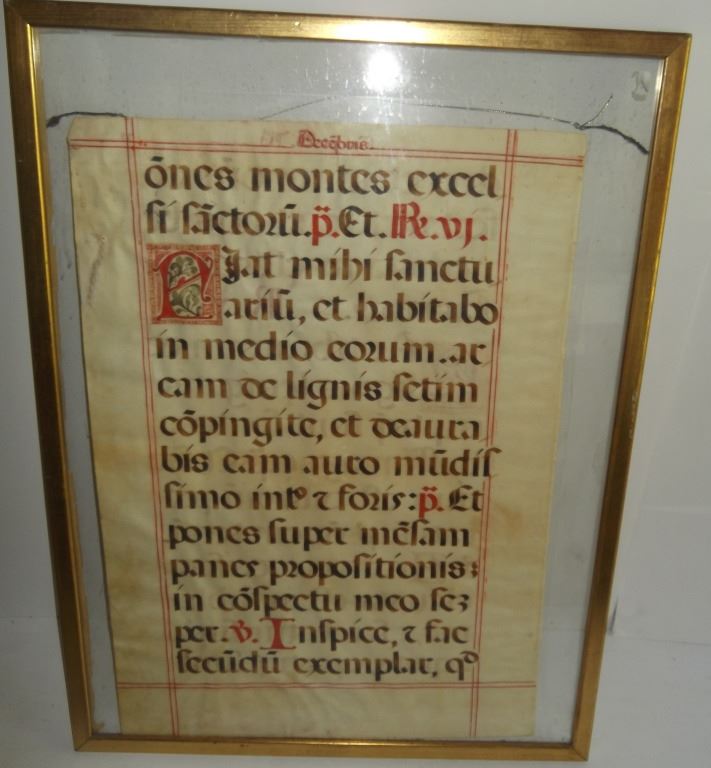 Decẽbris.
õnes montes excel
ſi ſãctoꝛũ. p̃. Et. Re. vj.
Fiat mihi ſanctu
ariũ, et habitabo
in medio eoꝛum. ar
cam de lignis ſetim
cõpingite, et deaura
bis eam auro mũdiſ
ſimo int᷑ ⁊ foꝛis: p̃. Et
pones ſuper mẽſam
panes pꝛopoſitionis:
in cõſpectu meo ſeꝫ
per. ℣. Inſpice, ⁊ fac
ſecũdũ exemplar, qᵈ